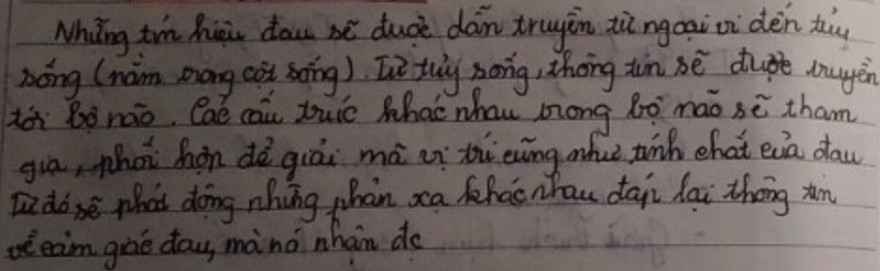 Những tín hiệu đau sẽ được dẫn truyền từ ngoại vi đến tủy
sống (nằm trong cột sống). Từ tủy sống, thông tin sẽ được truyền
tới bộ não. Các cấu trúc khác nhau trong bộ não sẽ tham
gia, phối hợp để giải mã vị trí cũng như tính chất của đau
Từ đó sẽ phát động những phản xạ khác nhau đáp lại thông tin
về cảm giác đau, mà nó nhận đc